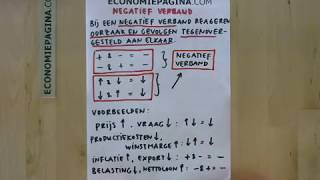 ECONOMIEPAGINA.COM
NEGATIEF VERBAND
BIJ EEN NEGATIEF VERBAND REAGEREN
OORZAAK EN GEVOLGEN TEGENOVER-
GESTELD AAN ELKAAR.
+ & - = -
- & + = -
NEGATIEF
VERBAND
↑ & ↓ = ↓
↓ & ↑ = ↓
VOORBEELDEN:
PRIJS ↑, VRAAG ↓ : ↑ ↓ = -
PRODUCTIEKOSTEN ↓,
WINSTMARGE ↑ : ↓ ↑ = -
INFLATIE ↑, EXPORT ↓ : + & - = -
BELASTING ↓, NETTOLOON ↑ : - & + = -
ECONOMIEPAGINA.COM